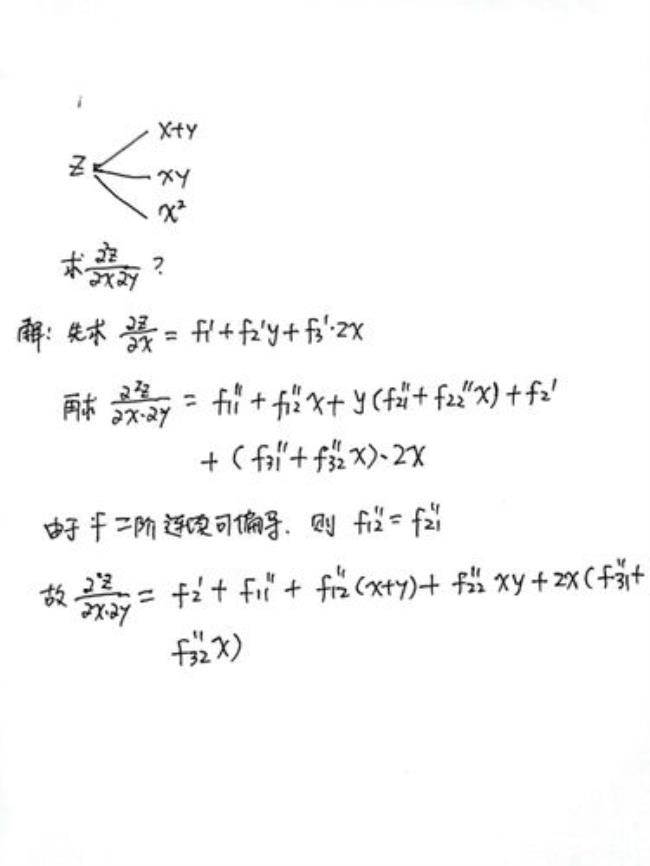 x+y
z
xy
x²
求 ∂²z/∂x∂y ?
解: 先求 ∂z/∂x = f₁' + f₂'y + f₃'·2x
再求 ∂²z/∂x·∂y = f₁₁'' + f₁₂''x + y(f₂₁'' + f₂₂''x) + f₂'
+ (f₃₁'' + f₃₂''x)·2x
由于 f 二阶连续可偏导. 则 f₁₂'' = f₂₁''
故 ∂²z/∂x·∂y = f₂' + f₁₁'' + f₁₂''(x+y) + f₂₂''xy + 2x(f₃₁'' +
f₃₂''x)